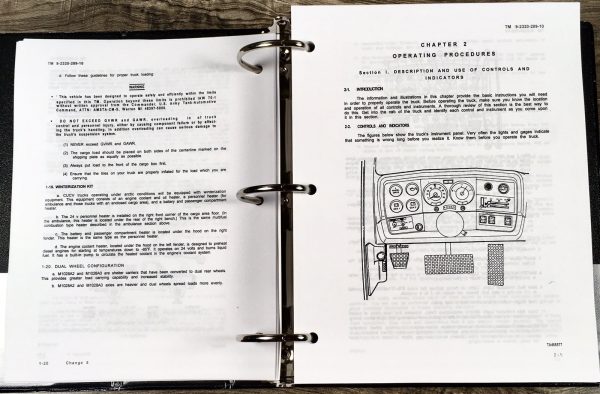 TM 9-2320-289-10
d. Follow these guidelines for proper truck loading:
WARNING
• This vehicle has been designed to operate safely and efficiently within the limits
specified in this TM. Operation beyond these limits is prohibited IAW 70-1
without written approval from the Commander, U.S. Army Tank-Automotive
Command, ATTN: AMSTA-CM-S, Warren MI 48397-5000.
• DO NOT EXCEED GVWR and GAWR, overloading of truck
control and personnel injury, either by causing component failure or by affect-
ing the truck's handling. In addition overloading can cause serious damage to
the truck's suspension system.
(1) NEVER exceed GVWR and GAWR.
(2) The cargo load should be placed on both sides of the centerline marked on the
shipping plate as equally as possible.
(3) Always put load to the front of the cargo box first.
(4) Ensure that the tires on your truck are properly inflated for the load which you are
carrying.
1-19. WINTERIZATION KIT
a. CUCV trucks operating under arctic conditions will be equipped with winterization
equipment. This equipment consists of an engine coolant and oil heater, a personnel heater (for
ambulance and those trucks with an enclosed cargo area), and a battery and passenger compartment
heater.
b. The 24 v personnel heater is installed on the right front corner of the cargo area floor. (In
the ambulance, this heater is located under the rear of the right bench.) This is the same multifuel
combustion type heater described in the ambulance section above.
c. The battery and passenger compartment heater is located under the hood on the right
fender. This heater is the same type as the personnel heater.
d. The engine coolant heater, located under the hood on the left fender, is designed to preheat
diesel engines for starting at temperatures down to -65°F. It operates on 24 volts and burns liquid
fuel. It has a built-in pump to circulate the heated coolant in the engine's coolant system.
1-20 DUAL WHEEL CONFIGURATION
a. M1028A2 and M1028A3 are shelter carriers that have been converted to dual rear wheels.
This provides greater load carrying capability and increased stability.
b. M1028A2 and M1028A3 axles are heavier and dual wheels spread loads more evenly.
1-20 Change 5
TM 9-2320-289-10
CHAPTER 2
OPERATING PROCEDURES
Section I. DESCRIPTION AND USE OF CONTROLS AND
INDICATORS
2-1. INTRODUCTION
The information and illustrations in this chapter provide the basic instructions you will need
in order to properly operate the truck. Before operating the truck, make sure you know the location
and operation of all controls and instruments. A thorough review of this section is the best way to
do this. Get into the cab of the truck and identify each control and instrument as you come upon
it in this section.
2-2. CONTROLS AND INDICATORS
The figures below show the truck's instrument panel. Very often the lights and gages indicate
that something is wrong long before you realize it. Know them before you operate the truck.
2-1